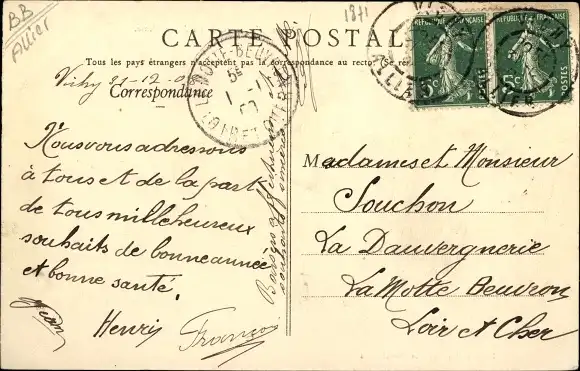 BB
Allier
1871
CARTE POSTALE
Tous les pays étrangers n'acceptent pas la correspondance au recto
Vichy 31-12-0
Correspondance
Nous vous adressons
à tous et de la part
de tous mille heureux
souhaits de bonne année
et bonne santé,
Jean
Henri
François
souhaits sincères
LA MOTTE-BEUVRON
5E
1 -1
LOIR ET CHER
RÉPUBLIQUE FRANÇAISE
5c
POSTES
RÉPUBLIQUE FRANÇAISE
5c
POSTES
Mesdames et Monsieur
Souchon
La Dauvergnerie
La Motte Beuvron
Loir et Cher